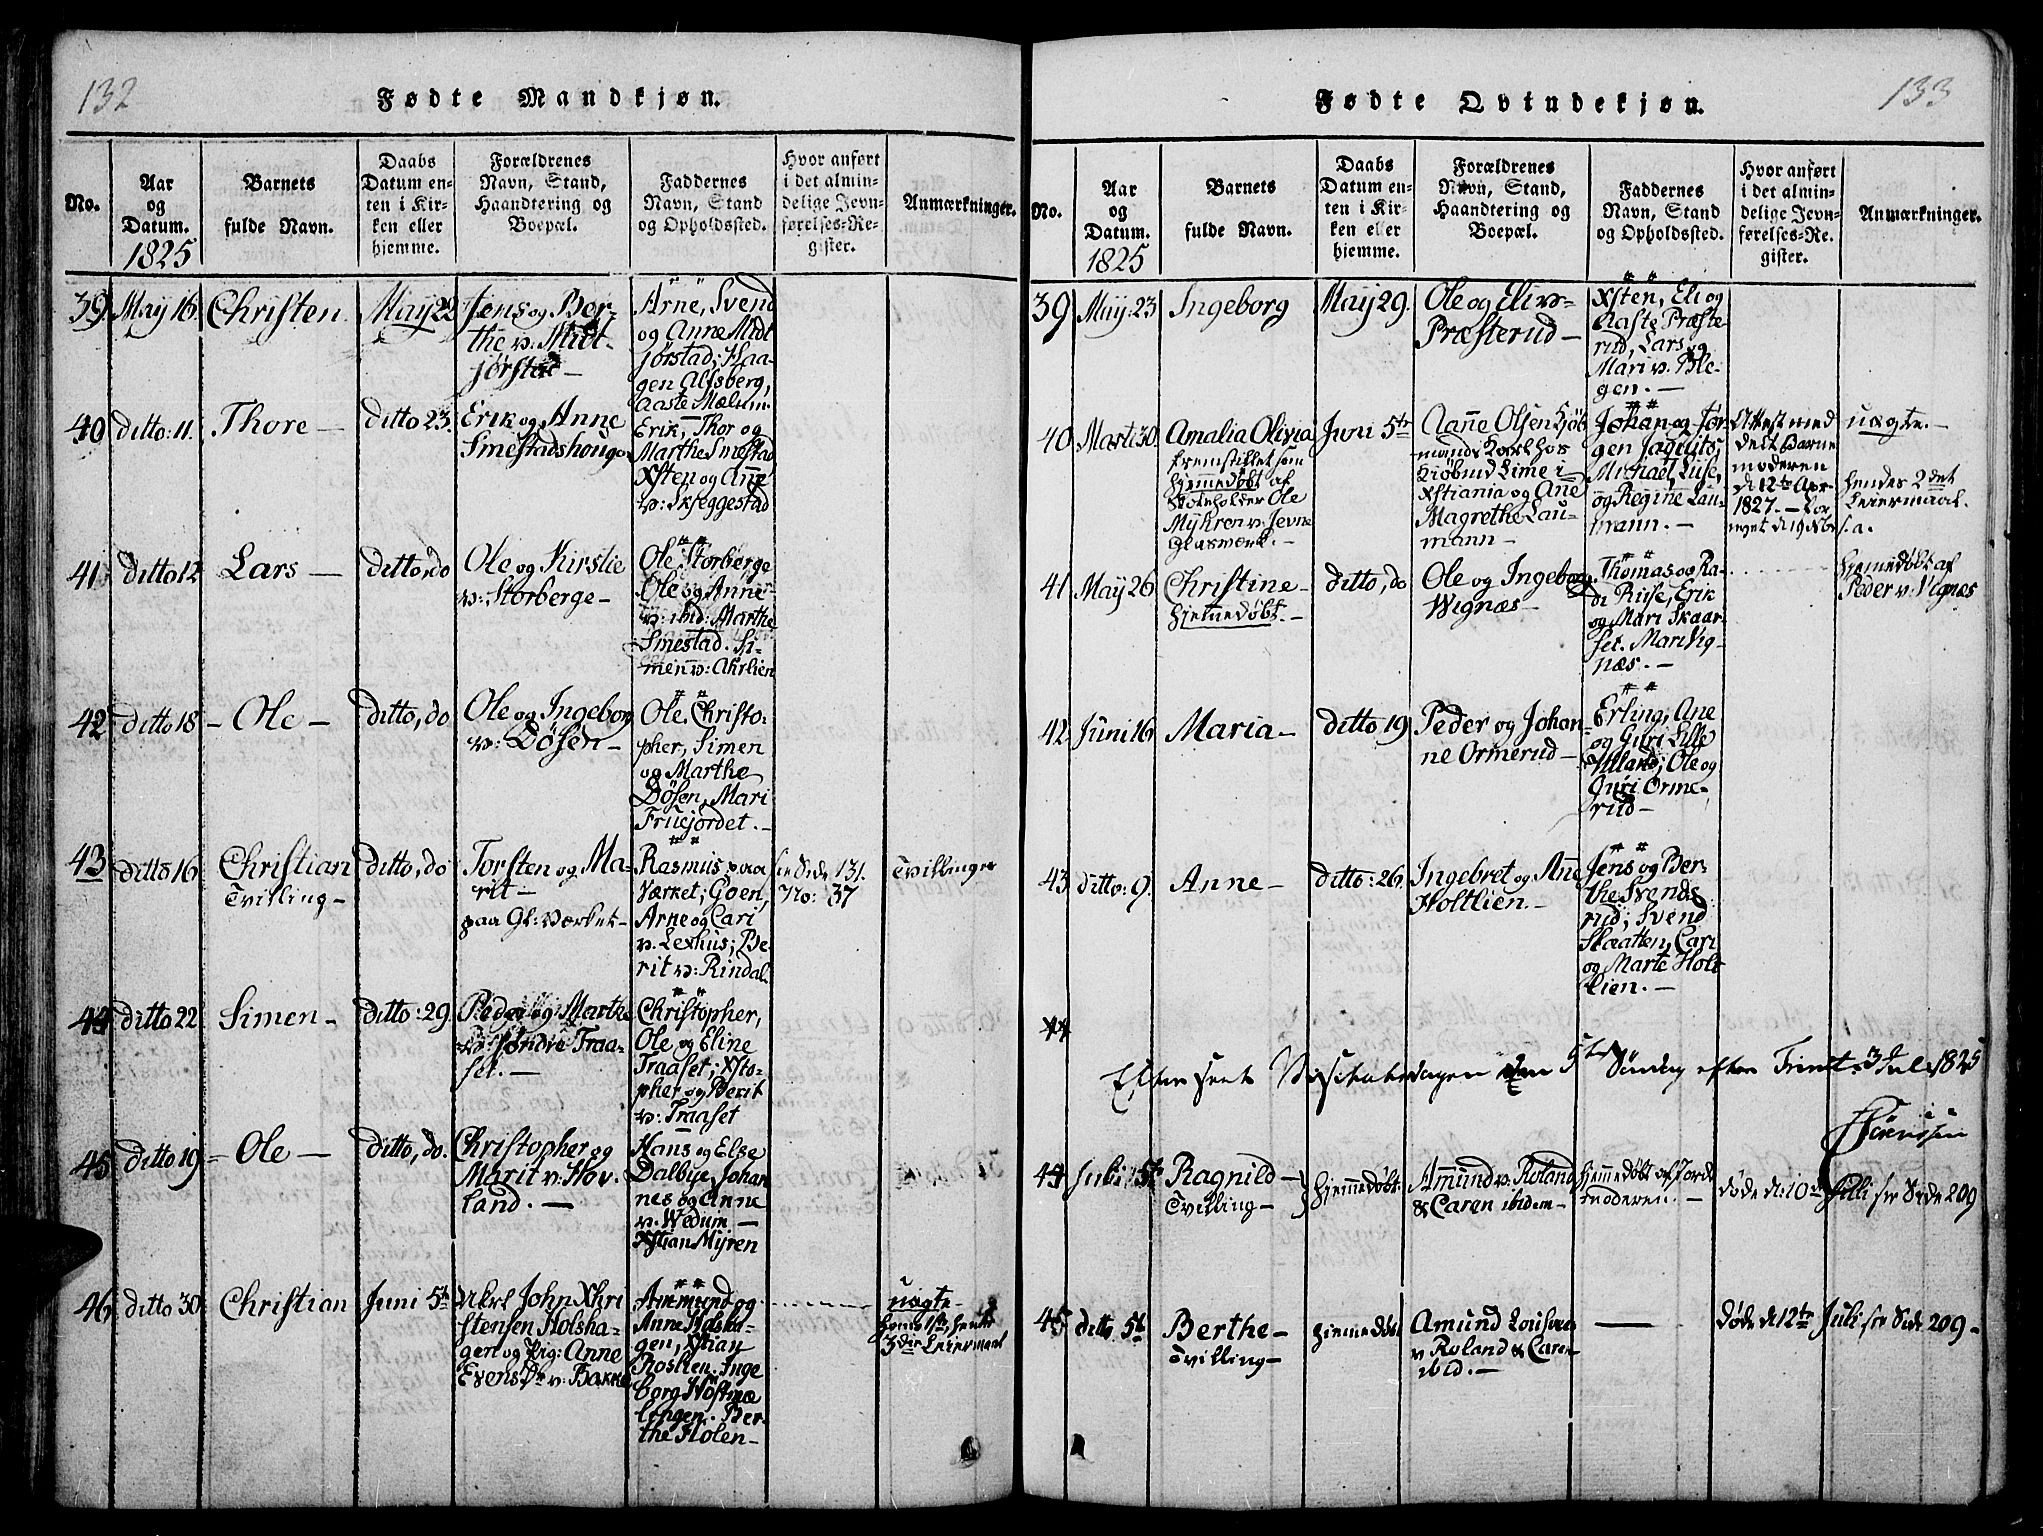 132
Fødte Mandkjøn.
No.
Aar
og
Datum.
1825
Barnets
fulde Navn.
Daabs
Datum en-
ten i Kir-
ken eller
hjemme.
Forældrenes
Navn, Stand,
Haandtering og
Boepæl.
Faddernes
Navn, Stand
og Opholdssted.
Hvor anført
i det almin-
delige Jevn-
førelses-Re-
gister.
Anmærkninger.
39
May 16
Christen
May 22
Jens og Ber-
the v: Midt-
jørstad —
Arne, Svend
og Anne Midt
jørstad; Haa-
gen Alfsberg,
Aaste Mælum
40
ditto: 11.
Thore —
ditto 23.
Erik og Anne
Smestadshougen
Erik, Thor og
Marthe Smestad
Xsten og Añe
v: Skjeggestad
41
ditto 12
Lars —
ditto, do
Ole og Kirstie
v: Storberge —
Ole Storberge
Ole og Anne
v: ibid: Marthe
Smestad. Si-
men v: Ahrlien
42
ditto 18
— Ole —
ditto, do
Ole og Ingeborg
v: Døsen —
Ole, Christo-
pher, Simen
og Marthe
Døsen, Mari
Fruejordet. —
43
ditto 16
Christian
Tvilling —
ditto, do
Torsten og Ma-
rit —
paa Gl: Værket —
Rasmus paa
Værket; Goen,
Arne og Cari
v. Lexhus; Be-
rit v: Rindal
se Side 131.
No: 37
Tvillinger
44
ditto 22
Simen —
ditto: 29.
Peder og Marthe
v: søndre Traa-
set. —
Christopher,
Ole og Eline
Traaset; Xsto-
pher og Berit
v: Traaset
45
ditto 19
— Ole —
ditto, do.
Christopher og
Marit v: Hov-
land. —
Hans og Else
Dalbye, Johan
nes og Anne
v. Wedum —
Xstian Myren
46
ditto 30
Christian
Juni 5te
John Xhri
stensen Holsha-
gen og Pig: Anne
Evensdr v: Bakke
Ammund og
Anne Holsha-
gen,
Inge
borg Høstmæ
lingen. Ber-
the Holen —
uægte —
3die Leiermaal
133
Fødte Qvindekjøn.
No.
Aar
og
Datum.
1825
Barnets
fulde Navn.
Daabs
Datum en-
ten i Kir-
ken eller
hjemme.
Forældrenes
Navn, Stand,
Haandtering og
Boepæl.
Faddernes
Navn, Stand
og Opholdssted.
Hvor anført
i det almin-
delige Jevn-
førelses-Re-
gister.
Anmærkninger.
39
May: 23
Ingeborg
May 29.
Ole og Eli v:
Præsterud —
Xsten, Eli og
Aaste Præste-
rud, Lars og
Mari v. Ble-
gen. —
40
Marti 30
Amalia Olivia
fremstillet som
hjemmedøbt af
Skoleholder Ole
Myhren v: Jevne
Glasværk. —
Juni 5te
Aanne Olsen Kjøb
mands Karl hos
Kiøbmd Lime i
Xstiania og Ane
Magrethe Lau-
mann —
Johan og Jør
gen
Michael, Luise,
og Regine Lau-
mann. —
Attest med
delt Barne
moderen
d. 12te Apr
1827. —
uægte. —
hendes 2det
Leiermaal.
41
May 26
Christine —
hjemmedøbt. —
ditto, do
Ole og Ingeborg
Wignæs —
Thomas og Ra-
di Ruse, Erik
og Mari Skaar-
set. Mari Vig-
næs. —
hjemmedøbt af
Peder v: Vignæs
42
Juni 16
Maria —
ditto 19
Peder og Johan-
ne Ormerud —
Erling, Ane
og Guri Lille
Ulland; Ole og
Guri Orme-
rud —
43
ditto: 9.
Anne —
ditto: 26.
Ingebret og Añe
Holtlien. —
Jens og Ber-
the Svends-
rud; Svend
Skaatten, Cari
og Marte Holt
lien. —
44
Efterseet Visitatsdagen den 5te Søndag efter Trinit: 3 Juli 1825
44
Juli 5te
Ragnild —
Tvilling —
hjemmedøbt
Amund v. Roland
& Caren ibidem —
hjemmedøbt af Jorde
moderen. —
døde d: 10de Juli see Side 209
45
ditto 5te
Berthe —
Tvilling —
hjemmedøbt
Amund
v Roland & Caren
ibid. —
—
døde d: 12te Juli see Side 209 —